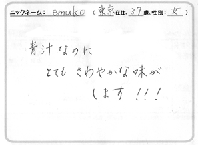 ニックネーム: emuko (東京在住, 37歳, 性別: 女)
青汁なのに
とてもさわやかな味が
します!!!